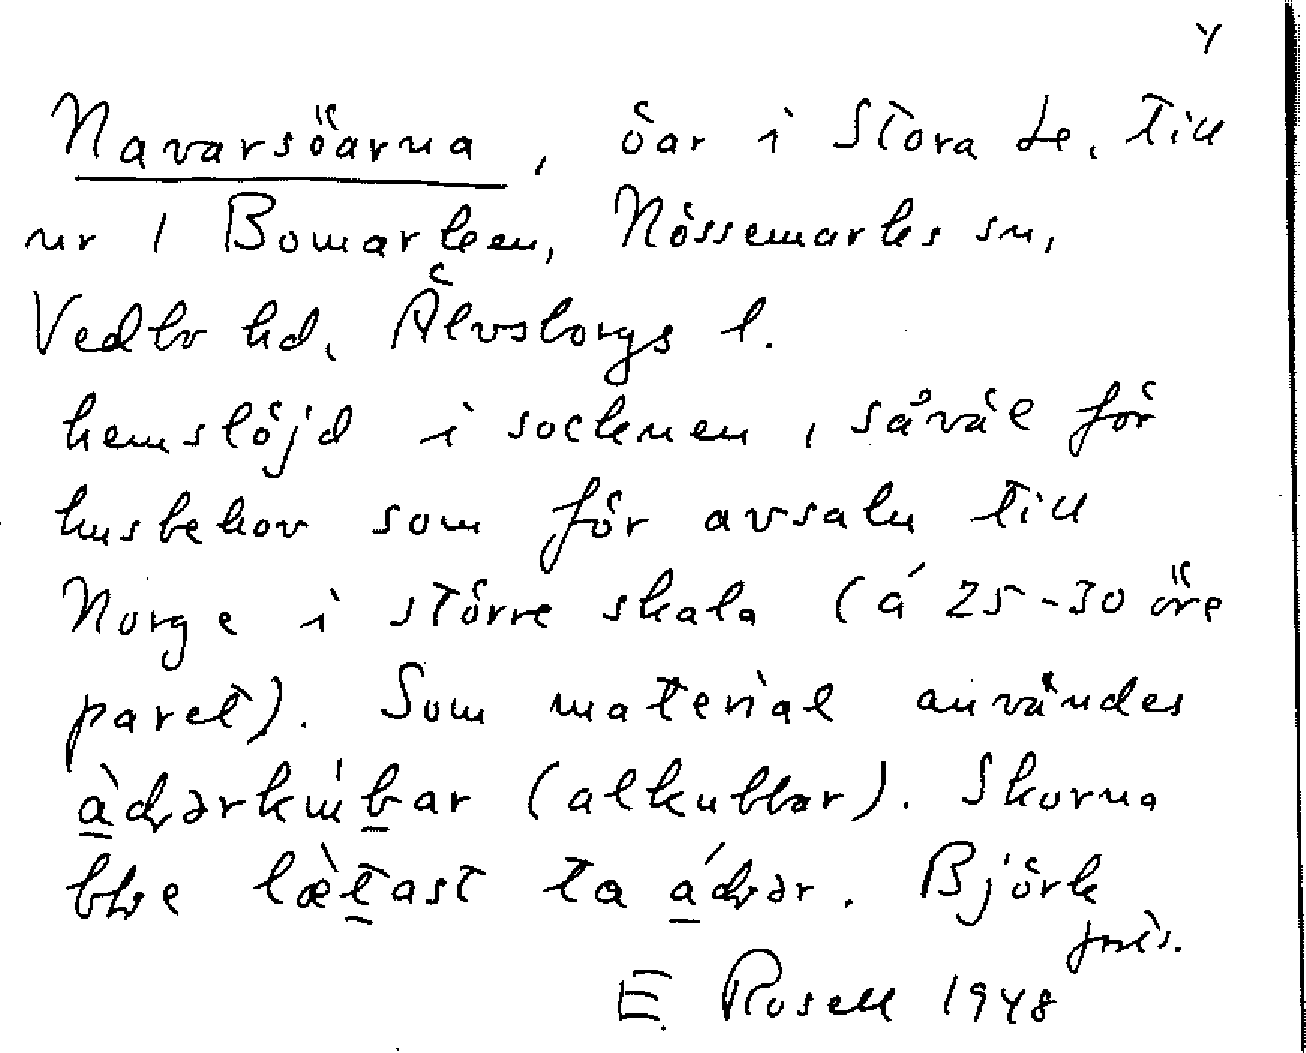 Y
Navarsöarna, öar i Stora Le, till
nr 1 Bomarken, Nössemarks sn,
Vedbo hd, Älvsborgs l.
hemslöjd i socknen, såväl för
husbehov som för avsalu till
Norge i större skala (á 25-30 öre
paret). Som material användes
(alkubbar). Skorna
ble lætast ta . Björk
E Rosell 1948